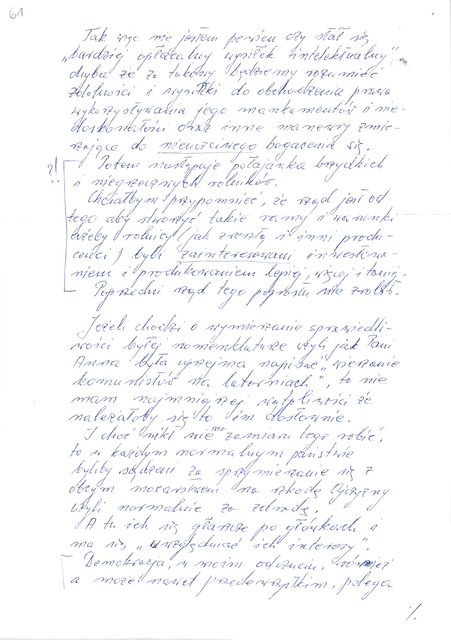 61
Tak więc nie jestem pewien czy stał się
„bardziej opłacalny wysiłek intelektualny”,
chyba że za takowy będziemy rozumieć
zdolności i wysiłki do obchodzenia prawa
wykorzystywania jego mankamentów i nie-
doskonałości oraz inne manewry zmie-
rzające do nieuczciwego bogacenia się.
?! Potem następuje połajanka brzydkich
i niegrzecznych rolników.
Chciałbym przypomnieć, że rząd jest od
tego aby stworzyć takie ramy i warunki
ażeby rolnicy (jak zresztą i inni produ-
cenci) byli zainteresowani inwestowa-
niem i produkowaniem lepiej, więcej i taniej.
Poprzedni rząd tego poprostu nie zrobił.
Jeżeli chodzi o wymierzanie sprawiedli-
wości byłej nomenklaturze czyli jak Pani
Anna była uprzejma napisać „wieszanie
komunistów na latarniach”, to nie
mam najmniejszej wątpliwości że
należałoby się to im dosłownie.
I choć nikt nie ma zamiaru tego robić,
to w każdym normalnym państwie
byliby sądzeni za sprzymierzanie się z
obcym mocarstwem na szkodę Ojczyzny
czyli normalnie za zdradę.
A tu ich się głaszcze po główkach i
ma się „uwzględniać ich interesy”.
Demokracja, w moim odczuciu, również
a może nawet przedewszystkim, polega
./.